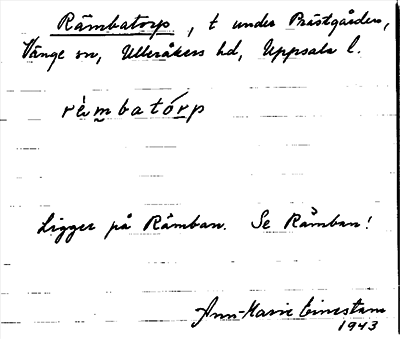 Råmbatorp, t under Prästgården,
Vänge sn, Ulleråkers hd, Uppsala l.
Ligger på Råmban. Se Råmban!
Ann-Marie
1943